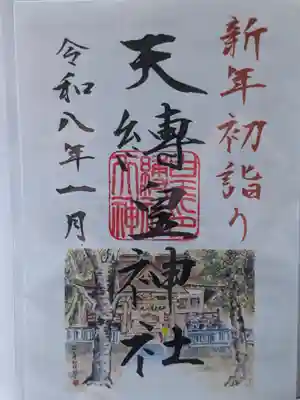 新年初詣り
天縛皇神社
令和八年一月